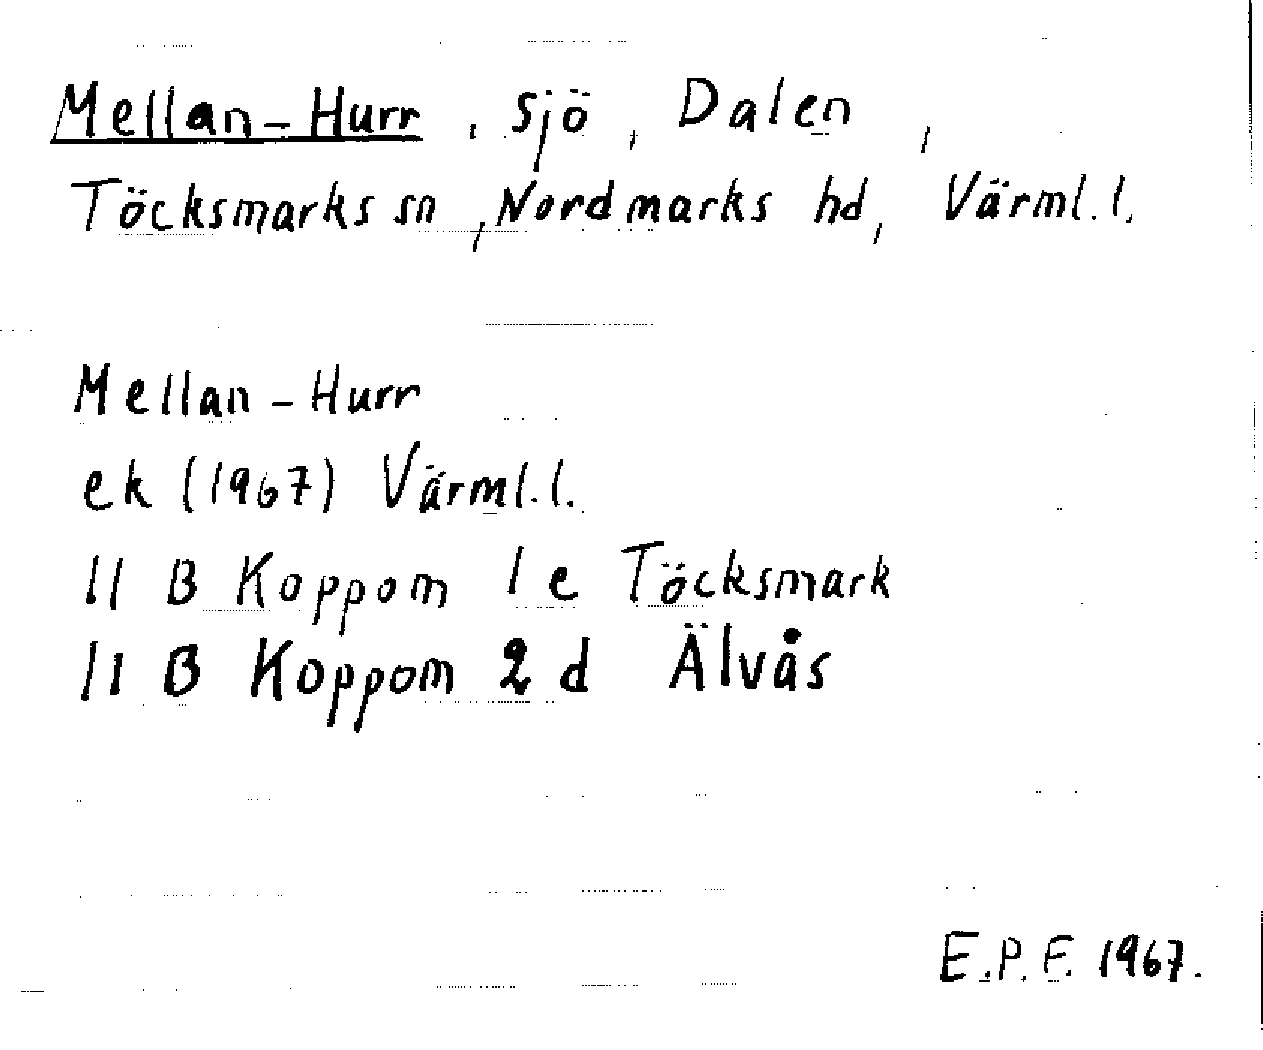 Mellan-Hurr, sjö, Dalen,
Töcksmarks sn, Nordmarks hd, Värml. l.
Mellan-Hurr
ek (1967) Värml. l.
11 B Koppom 1 e Töcksmark
11 B Koppom 2 d Älvås
E.P.F. 1967.